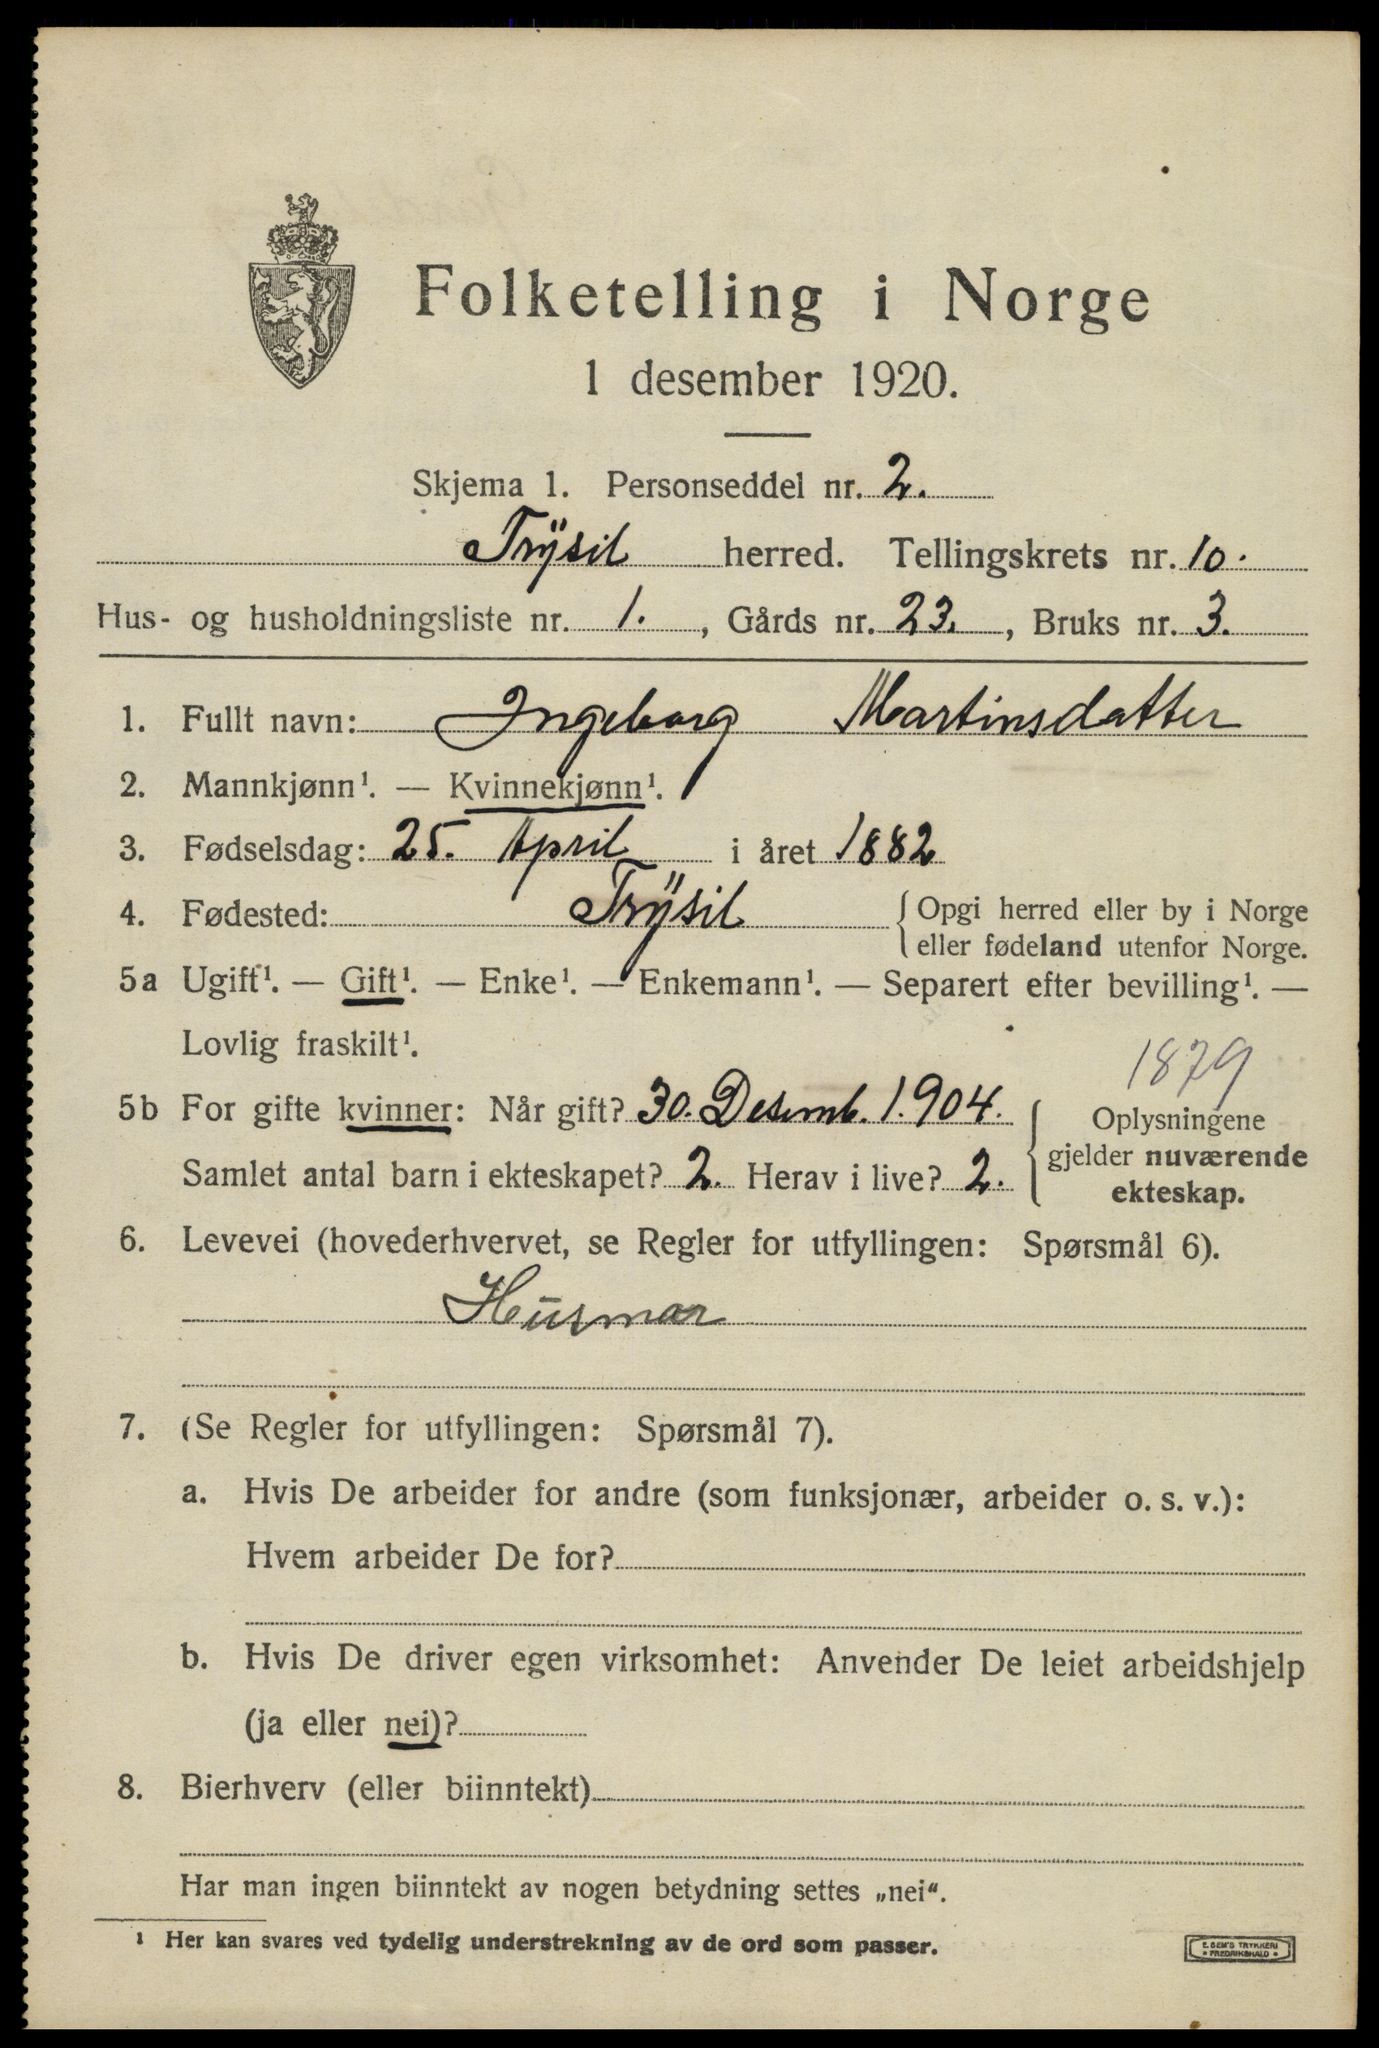 Folketelling i Norge
1 desember 1920.
Skjema 1. Personseddel nr. 2.
Trÿsil herred. Tellingskrets nr. 10.
Hus- og husholdningsliste nr. 1. , Gårds nr. 23. , Bruks nr. 3.
1. Fullt navn: Ingeborg Martinsdatter
2. Mannkjønn¹. — Kvinnekjønn¹.
3. Fødselsdag: 25. April i året 1882
4. Fødested: Trÿsil { Opgi herred eller by i Norge
eller fødeland utenfor Norge.
5a Ugift¹. — Gift¹. — Enke¹. — Enkemann¹. — Separert efter bevilling¹. —
Lovlig fraskilt¹.
1879
5b For gifte kvinner: Når gift? 30. Desemb. 1.904.
Samlet antal barn i ekteskapet? 2. Herav i live? 2.
{ Oplysningene
gjelder nuværende
ekteskap.
6. Levevei (hovederhvervet, se Regler for utfyllingen: Spørsmål 6).
Husmor
7. (Se Regler for utfyllingen: Spørsmål 7).
a. Hvis De arbeider for andre (som funksjonær, arbeider o. s. v.):
Hvem arbeider De for?
b. Hvis De driver egen virksomhet: Anvender De leiet arbeidshjelp
(ja eller nei)?
8. Bierhverv (eller biinntekt)
Har man ingen biinntekt av nogen betydning settes „nei“.
¹ Her kan svares ved tydelig understrekning av de ord som passer.
E. SEM'S TRYKKERI
• FREDRIKSHALD •